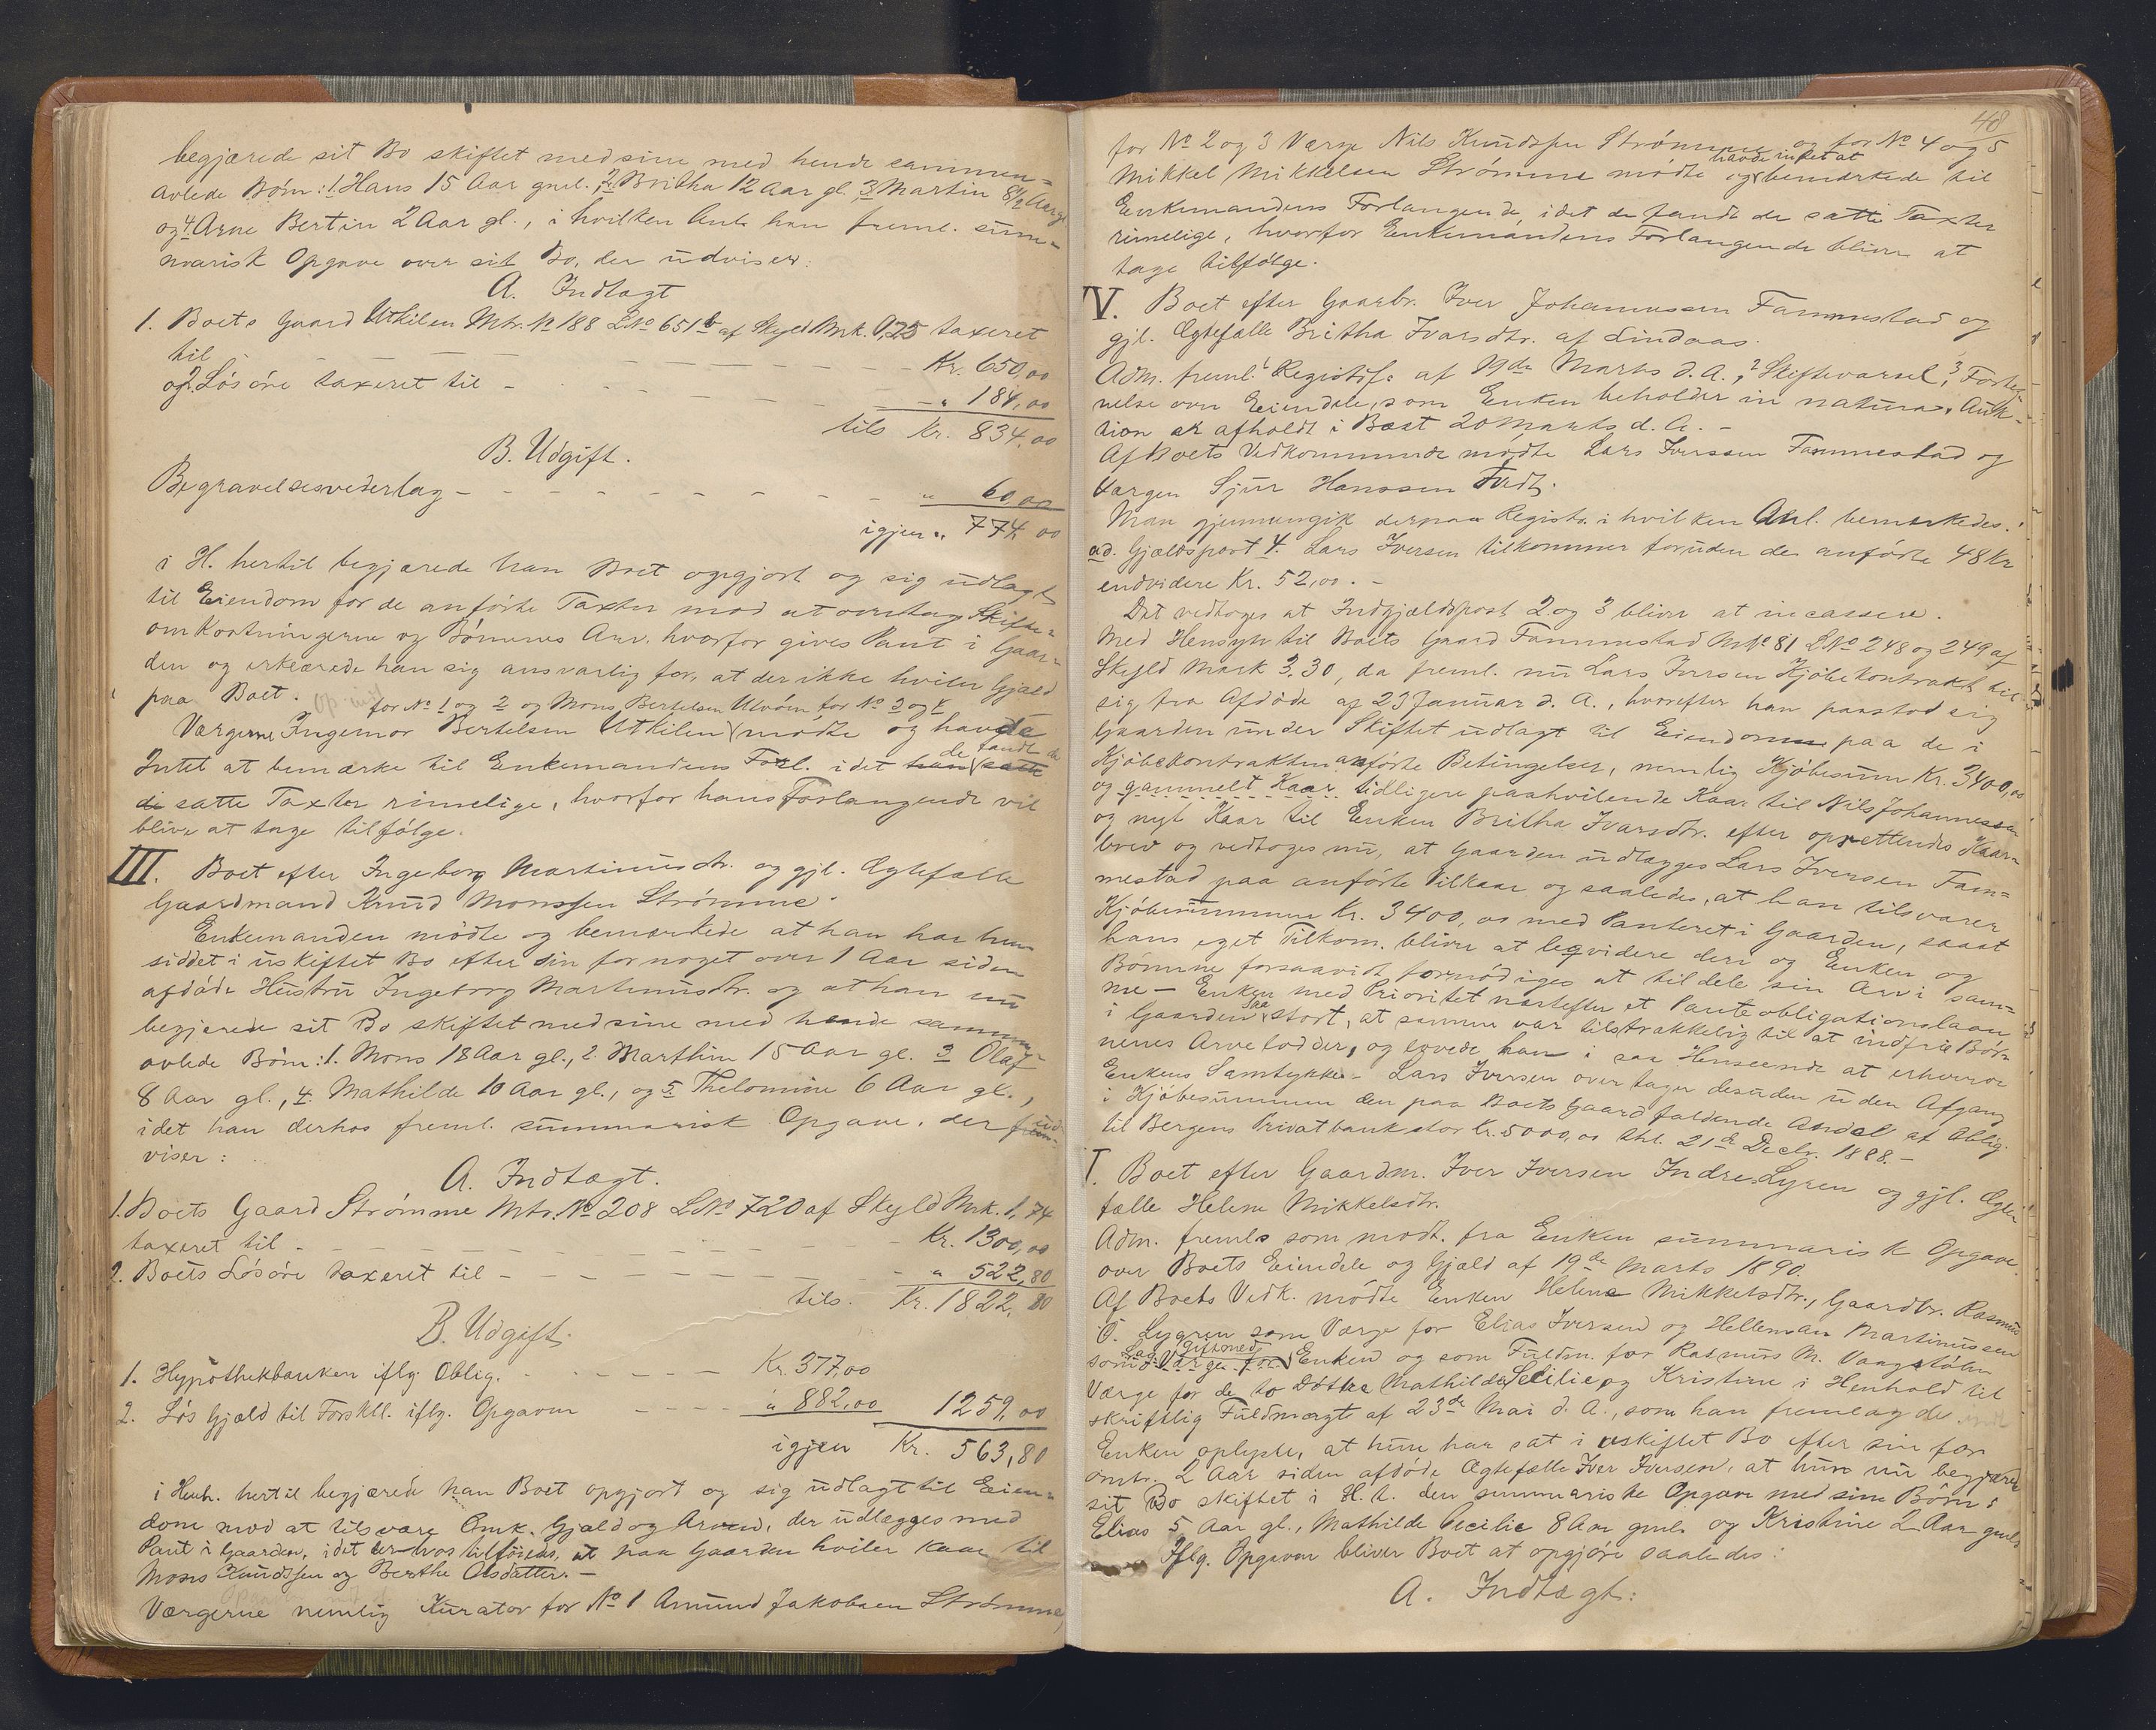 begjærede sit Bo skiftet med sine med hende sammen-
avlede Børn: 1. Hans 15 Aar gml. 2. Britha 12 Aar gl. 3 Martin 8 1/2 Aar gl
og 4. Arne Bertin 2 Aar gl., i hvilken Anl. han freml. sum-
marisk Opgave over sit Bo, der udviser:
A. Indtægt
1. Boets Gaard Utkilen Mtr. N 188 LNo 651 b af Skyld Mrk. 0,75 taxeret
til - - - - Kr. 650,00
og 2. Løsøre taxeret til - - - - " 184,00
tils Kr. 834,00
B. Udgift.
Begravelsesvederlag - - - - " 60,00
igjen " 774,00
i H. hertil begjærede han Boet opgjort og sig udlagt
til Eiendom for de anførte Taxter mod at overtage Skifte-
omkostningerne og Børnenes Arv, hvorfor gives Pant i Gaar-
den og erklærede han sig ansvarlig for, at der ikke hviler Gjæld
paa Boet.
for No 1 og 2 og Mons Bertelsen Utvær for No 3 og 4
Værgerne Ingemor Bertelsen Utkilen mødte og havde
Intet at bemærke til Enkemandens Forl. idet de fandt de
satte Taxter rimelige, hvorfor hans Forlangende vil
blive at tage tilfølge.
III. Boet efter Ingeborg Martinusdtr. og gjl. Ægtefælle
Gaardmand Knud Monssen Strømme.
Enkemanden mødte og bemærkede at han har hen-
siddet i uskiftet Bo efter sin for noget over 1 Aar siden
afdøde Hustru Ingeborg Martinusdtr. og at han nu
begjærede sit Bo skiftet med sine med hende sammen-
avlede Børn: 1. Mons 18 Aar gl., 2. Marthin 15 Aar gl. 3 Olaf
8 Aar gl., 4. Mathilde 10 Aar gl., og 5. Thelomine 6 Aar gl.,
idet han derhos freml. summarisk Opgave, der ud-
viser:
A. Indtægt.
1. Boets Gaard Strømme Mtr. No 208 LNo 720 af Skyld Mrk. 1,74
taxeret til - - - - Kr. 1300,00
2. Boets Løsøre taxeret til - - - - " 522,80
tils. Kr. 1822,80
B. Udgift.
1. Hypothekbanken iflg. Oblig. - - - - Kr. 377,00
2. Løs Gjæld til Forskll. iflg. Opgaven - - - - " 882,00 1259,00
igjen Kr. 563,80
i Henh. hertil begjærede han Boet opgjort og sig udlagt til Eien-
dom mod at tilsvare Omk. Gjæld og Arven, der udlægges med
Pant i Gaarden, idet derhos tilføiedes, at paa Gaarden hviler Kaar til
Mons Knudssen og Berthe Olsdatter. -
Værgerne nemlig Kurator for No 1 Amund Jakobsen Strømme,
48
for No 2 og 3 Værge Nils Knudssen Strømme og for No 4 og 5
havde intet at
Mikkel Mikkelsen Strømme mødte og bemærkede til
Enkemandens Forlangende, idet de fandt de satte Taxter
rimelige, hvorfor Enkemandens Forlangende bliver at
tage tilfølge.
V. Boet efter Gaardbr. Iver Johannessen Fammestad og
gjl. Ægtefælle Britha Ivarsdtr. af Lindaas.
Adm. freml. 1 Registrf. af 19de Marts d. A., 2 Skiftevarsel, 3 Forteg-
nelse over Eiendele, som Enken beholder in natura. Auk-
tion er afholdt i Boet 20 Marts d. A. -
Af Boets Vedkommende mødte Lars Iverssen Fammestad og
Værgen Sjur Hanssen Tvedt.
Man gjennemgik derpaa Registr. i hvilken Anl. bemærkedes:
ad. Gjældspost 4. Lars Iversen tilkommer foruden de anførte 48 Kr
endvidere Kr. 52,00. -
Det vedtoges at Indgjældspost 2 og 3 bliver at incassere.
Med Hensyn til Boets Gaard Fammestad MNo 81 LNo 248 og 249 af
Skyld Mark 3.30, da freml. nu Lars Iversen Kjøbekontrakt til
sig fra Afdøde af 23 Januar d. A., hvorefter han paastod sig
Gaarden under Skiftet udlagt til Eiendom paa de i
Kjøbekontrakten anførte Betingelser, nemlig Kjøbesum Kr. 3400,00
og gammelt Kaar tidligere paahvilende Kaar til Nils Johannessen
og nyt Kaar til Enken Britha Ivarsdtr. efter oprettendes Kaar-
brev og vedtoges nu, at Gaarden udlægges Lars Iversen Fam-
mestad paa anførte Vilkaar og saaledes, at han tilsvarer
Kjøbesummen Kr. 3400,00 med Panteret i Gaarden, saast
hans eget Tilkom. bliver at leqvidere deri og Enken og
Børnene forsaavidt fornødiges at tildele sin Arv i sam-
me - Enken med Prioritet næstefter et Panteobligationslaan
i Gaarden saa stort, at samme var tilstrækkelig til at indfrie Bør-
nenes Arvelodder, og lovede han i saa Henseende at erhverve
Enkens Samtykke. - Lars Iversen overtager desuden uden Afgang
i Kjøbesummen den paa Boets Gaard faldende Andel af Oblig.
til Bergens Privatbank stor Kr. 5000,00 thl. 21de Decbr. 1888. -
Boet efter Gaardm. Iver Iversen Indre Lygren og gjl. Ægte-
fælle Helene Mikkelsdtr.
Adm. fremls som modt. fra Enken summarisk Opgave
over Boets Eiendele og Gjæld af 19de Marts 1890.
Af Boets Vedk. mødte Enken Helene Mikkelsdtr., Gaardbr. Rasmus
O. Lygren som Værge for Elias Iversen og Helleman Martinussen
som Laugværge for Enken og som Fuldm. for Rasmus M. Vaagstølen
Værge for de to Døttre Mathilde Cecilie og Kristine i Henhold til
skriftlig Fuldmagt af 23de Mai d. A., som han fremlagde
Enken oplyste, at hun har sat i uskiftet Bo efter sin for
omtr. 2 Aar siden afdøde Ægtefælle Iver Iversen, at hun nu begjære
sit Bo skiftet i H. t. den summariske Opgave med sine Børn:
Elias 5 Aar gl., Mathilde Cecilie 8 Aar gml. og Kristine 2 Aar gml.
Iflg. Opgaven bliver Boet at opgjøre saaledes:
A. Indtægt: